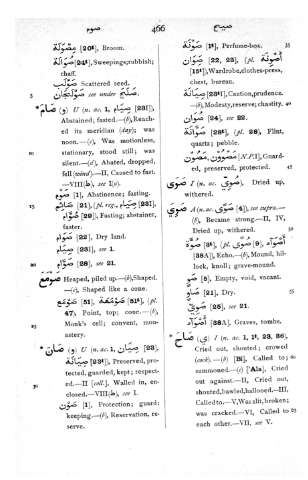 صوم 466 صيح
مِصْوَلَة [20t], Broom.
صُوَالَة [24t], Sweepings, rubbish;
chaff.
صُوِّل Scattered seed.
صَوْلَجَان see under صلج.
صَامَ (و) U (n. ac. 1, صِيَام [23]),
Abstained; fasted.—(b), Reach-
ed its meridian (day); was
noon.—(c), Was motionless,
stationary, stood still; was
silent.—(d), Abated, dropped,
fell (wind).—II, Caused to fast.
—VIII (b), see I (a).
صَوْم [1], Abstinence; fasting.
صَائِم [21], (pl. reg., صِيَام [23],
صُوَّام [29]), Fasting; abstainer,
faster.
صَوَّام [22], Dry land.
صِيَام [23], see 1.
صُوَّام [28], see 21.
صَوْمَعَ Heaped, piled up.—(b), Shaped.
—(c), Shaped like a cone.
صَوْمَع [51], صَوْمَعَة [51t], (pl.
47), Point, top; cone.—(b),
Monk's cell; convent, mon-
astery.
صَانَ (و) U (n. ac. 1, صِيَان [23],
صِيَانَة [23t]), Preserved, pro-
tected, guarded, kept; respect-
ed.—II [coll.], Walled in, en-
closed.—VIII (b), see I.
صَوْن [1], Protection; guard;
keeping.—(b), Reservation, re-
serve.
صَوْنَة [1t], Perfume-box.
صِوَان [22, 23], (pl. أَصْوِنَة
[15t]), Wardrobe, clothes-press,
chest, bureau.
صِيَانَة [23t], Caution, prudence.
—(b), Modesty, reserve; chastity.
صُوَان [24], see 22.
صَوَّانَة [28t], (pl. 28), Flint,
quartz; pebble.
مَصُوْن, مَصْوُوْن [N.P.I], Guard-
ed, preserved, protected.
صَوَى I (n. ac. صُوِيّ), Dried up,
withered.
صَوِيَ A (n. ac. صَوًى [4]), ut supra.—
(b), Became strong.—II, IV,
Dried up, withered.
صُوَّة [3t], (pl. صُوًى [9], أَصْوَاء
[38A]), Echo.—(b), Mound, hil-
lock, knoll; grave-mound.
[5], Empty, void, vacant.
صَاوٍ [21], Dry.
صَوِيّ [25], see 21.
أَصْوَاء [38A], Graves, tombs.
صَاحَ (ي) I (n. ac. 1, 1t, 23, 26),
Cried out, shouted; crowed
(cock).—(b) [Bi], Called to;
summoned—(c) ['Ala], Cried
out against.—II, Cried out,
shouted, bawled, hallooed.—III,
Called to.—V, Was split, broken;
was cracked.—VI, Called to
each other.—VII, see V.